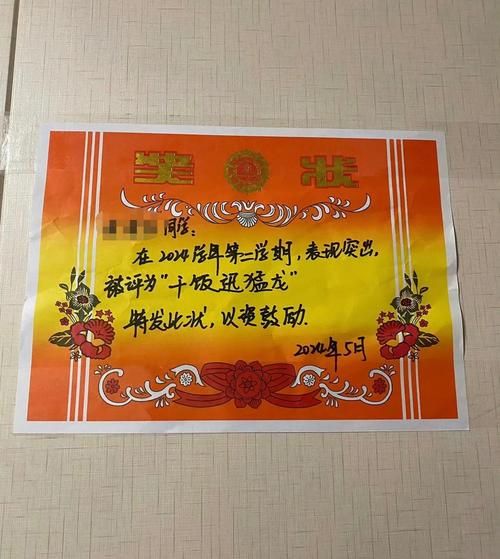 奖 状
同学:
在2024学年第二学期,表现突出,
被评为“干饭迅猛龙”
特发此状,以资鼓励.
2024年5月